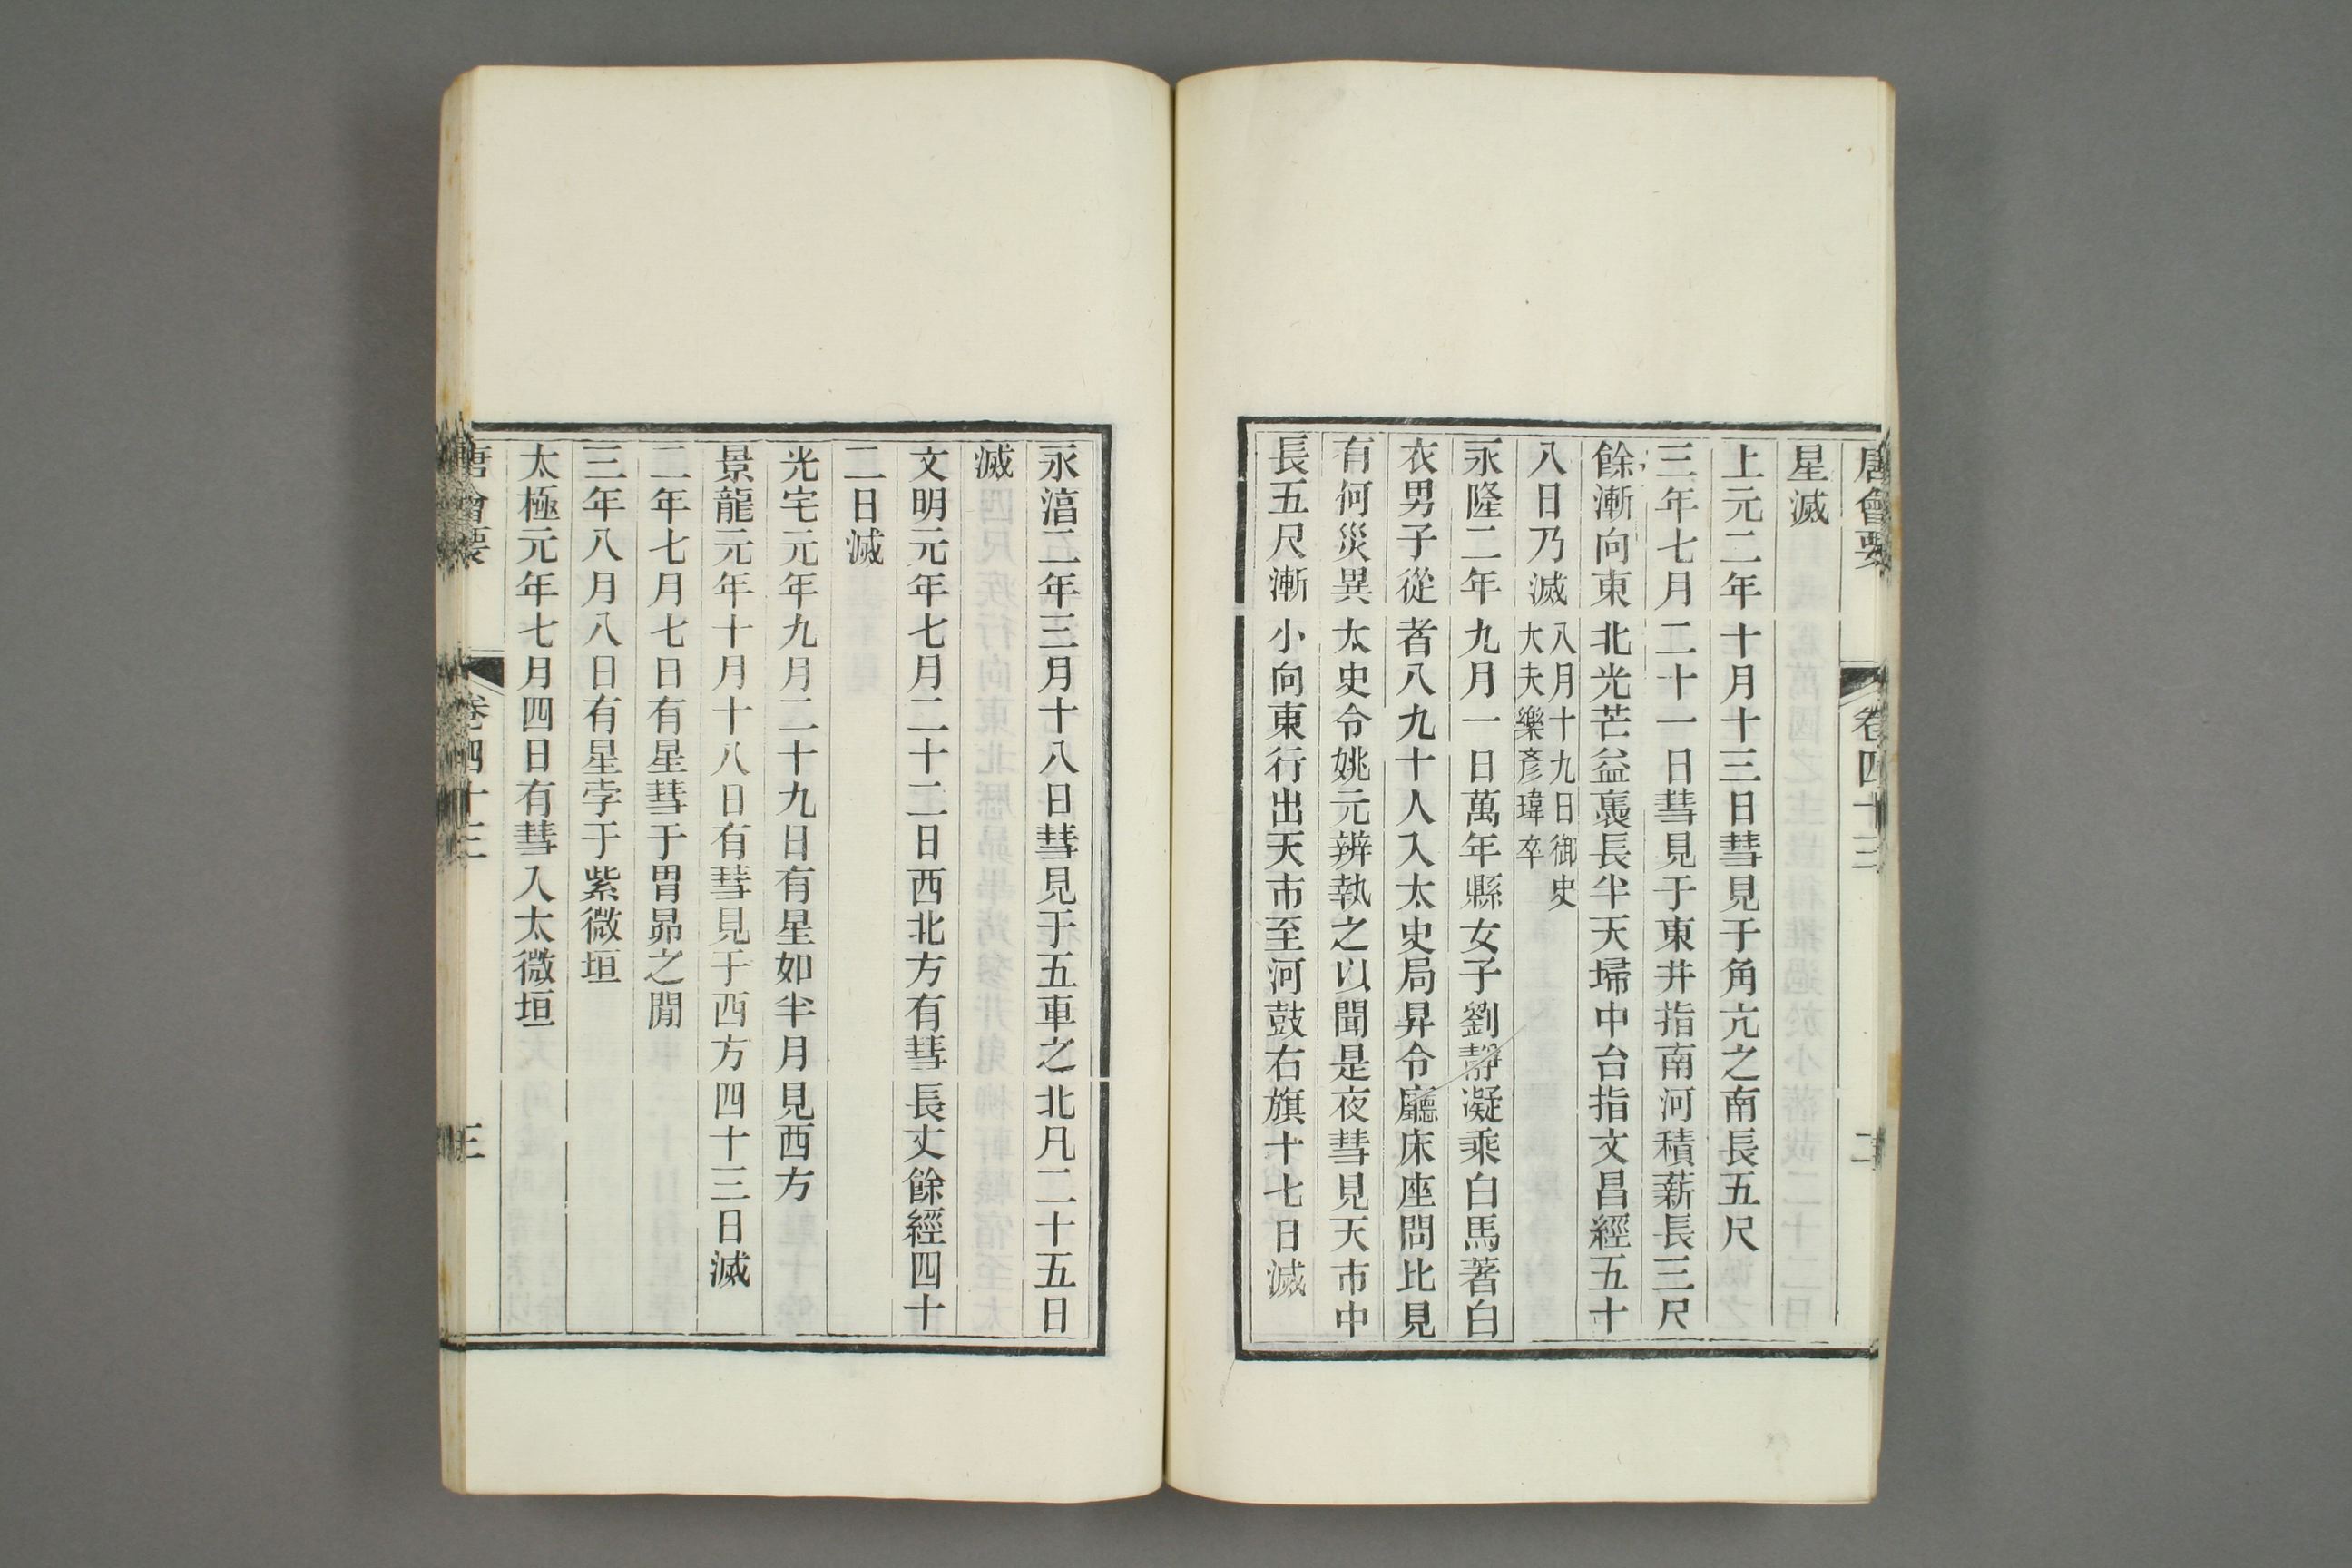 唐會要 卷四十三 二
星滅
上元二年十月十三日彗見于角亢之南長五尺
三年七月二十一日彗見于東井指南河積薪長三尺
餘漸向東北光芒益袤長半天埽中台指文昌經五十
八日乃滅八月十九日御史大夫樂彥瑋卒
永隆二年九月一日萬年縣女子劉靜凝乘白馬著白
衣男子從者八九十人入太史局昇令廳床座問比見
有何災異太史令姚元辨執之以聞是夜彗見天市中
長五尺漸小向東行出天市至河鼓右旗十七日滅
永湻二年三月十八日彗見于五車之北凡二十五日
滅
文明元年七月二十二日西北方有彗長丈餘經四十
二日滅
光宅元年九月二十九日有星如半月見西方
景龍元年十月十八日有彗見于西方四十三日滅
二年七月七日有星彗于胃昴之閒
三年八月八日有星孛于紫微垣
太極元年七月四日有彗入太微垣
唐會要 卷四十三 三